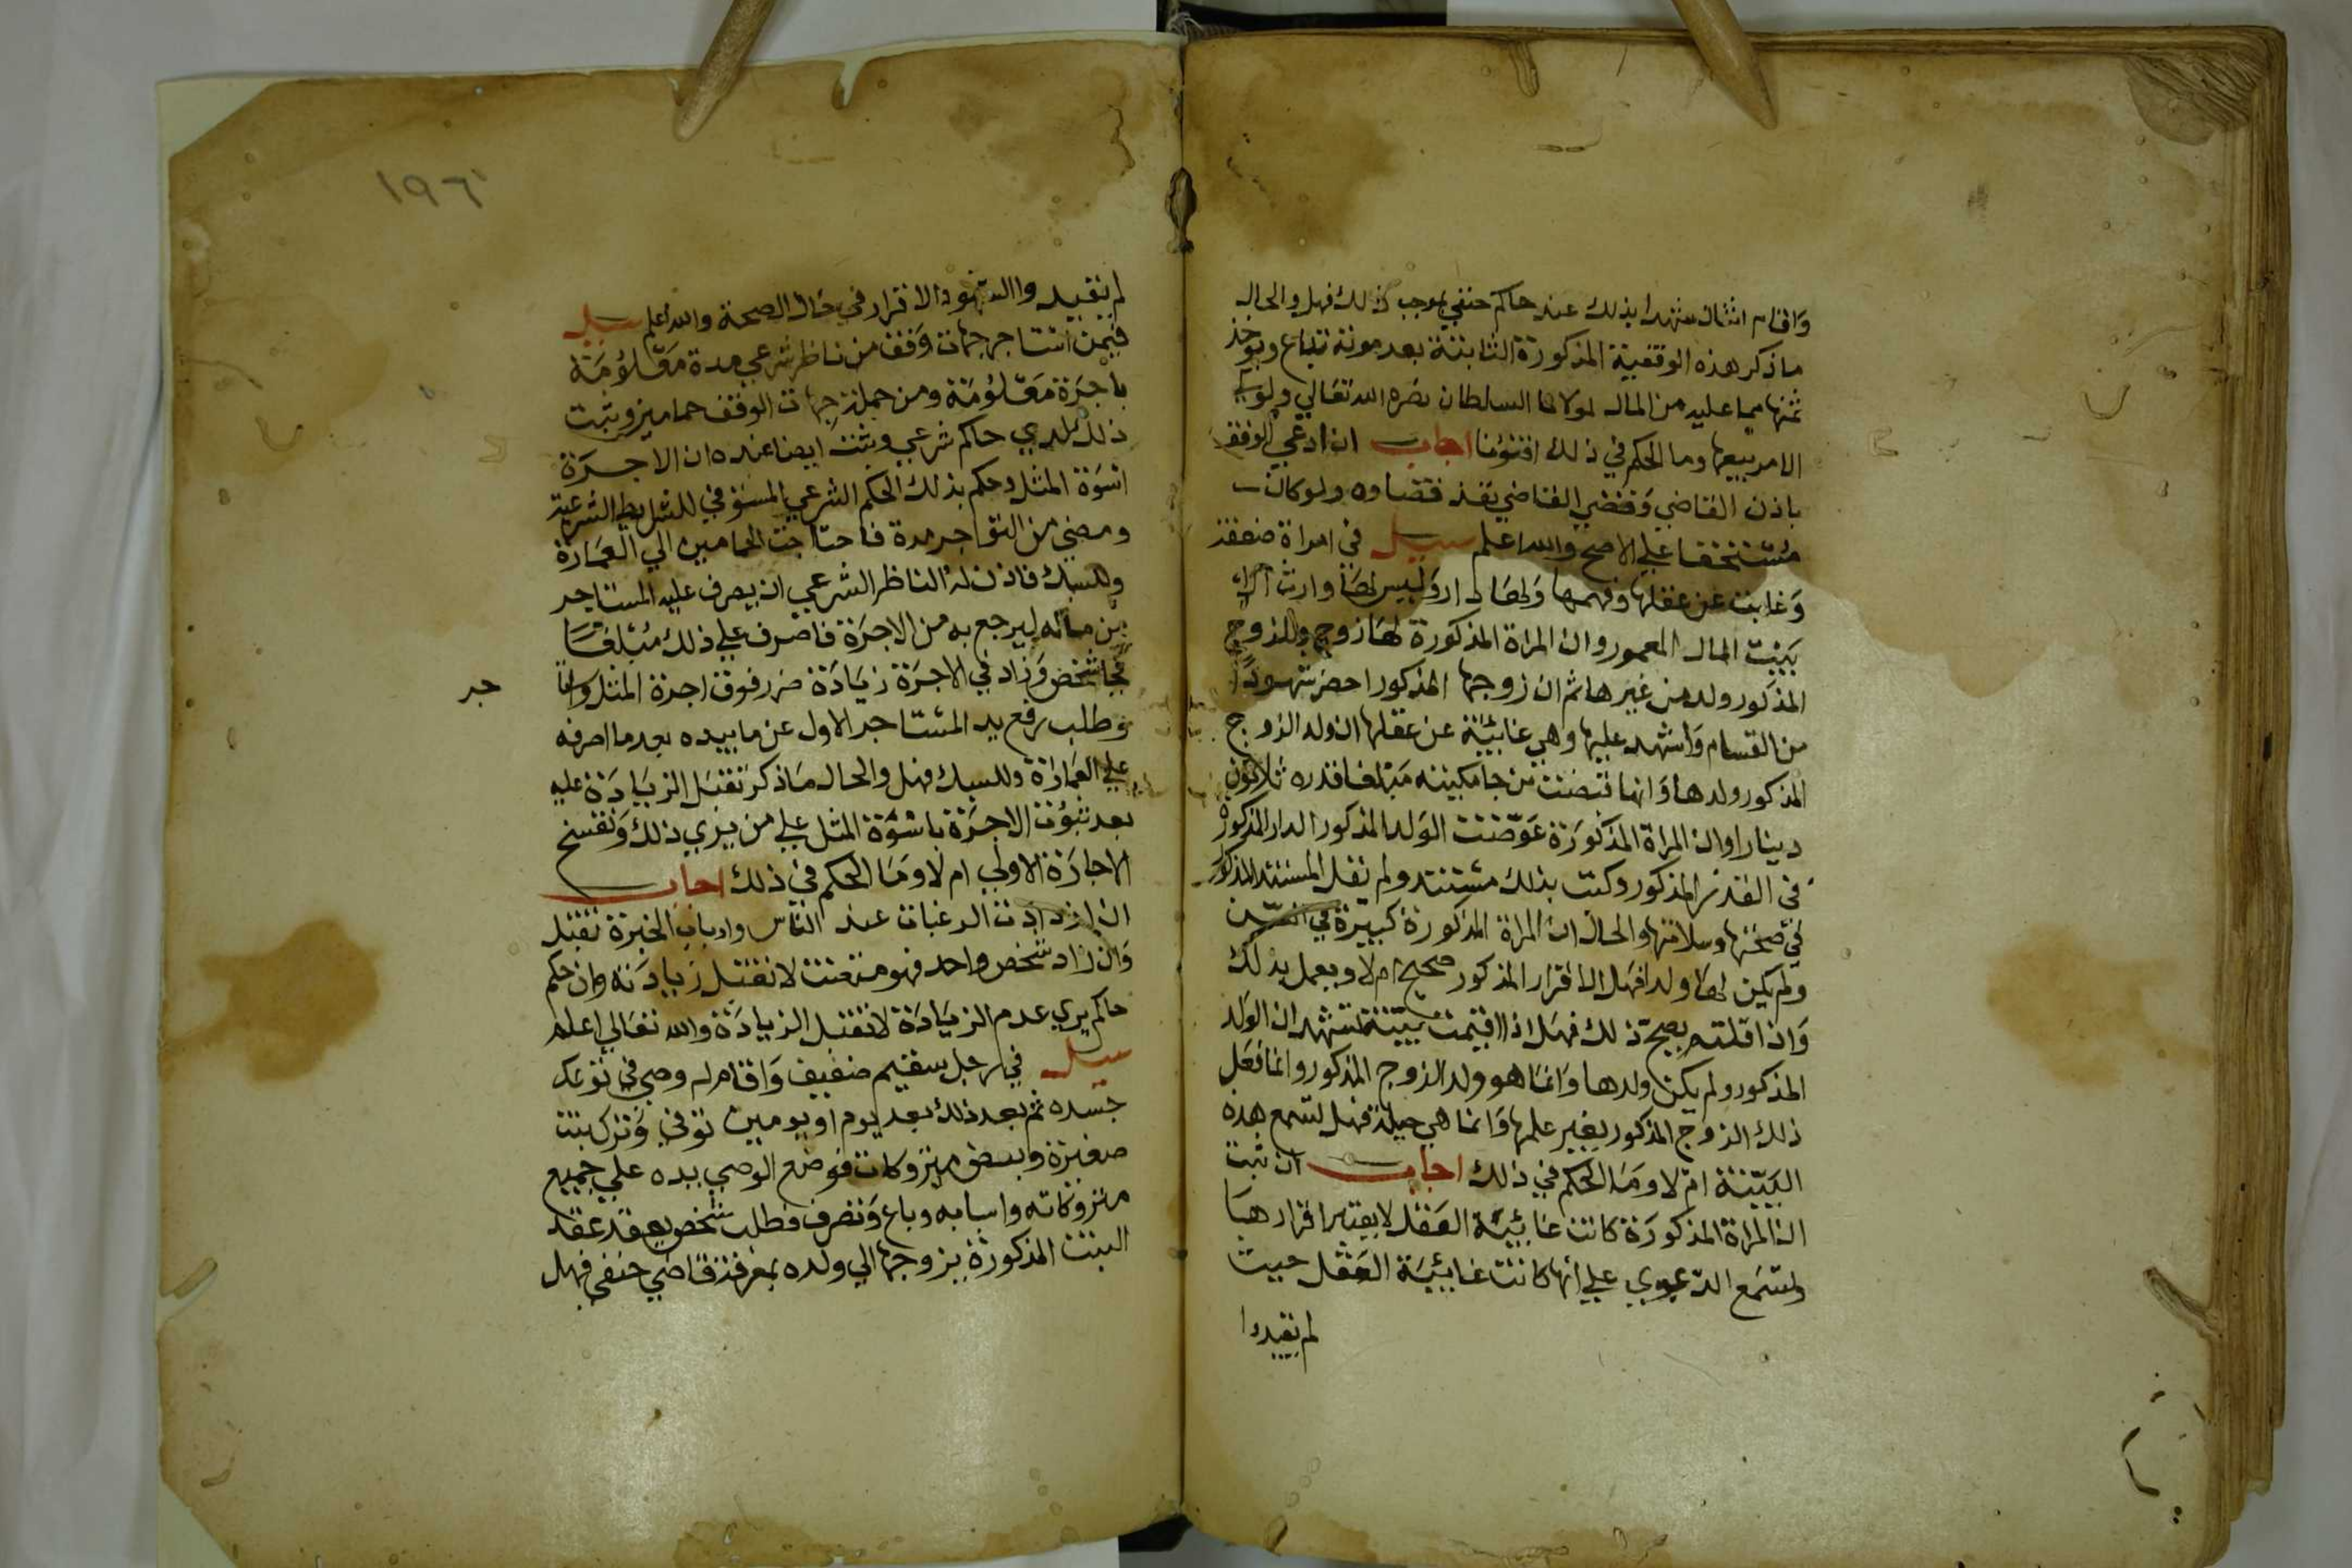 واقام اثنان شهدا بذلك عند حاكم حنفي بموجب ذلك فهل والحال
ما ذكر هذه الوقفية المذكورة الثابتة بعد موته تباع ويوخذ
ثمنها مما عليه من المال لمولانا السلطان نصره الله تعالي ولولي
الامر بيعها وما الحكم في ذلك افتونا اجاب ان ادعي الوقف
باذن القاضي وقضي القاضي نفذ قضاوه ولو كان
مستحقا علي الاصح والله اعلم سيل في امراة ضعفت
وغابت عن عقلها وفهمها ولها دار وليس لها وارث الا
بيت المال المعمور وان المراة المذكورة لها زوج وللزوج
المذكور ولد من غيرها ثم ان زوجها المذكور احضر شهودا
من القسام واشهد عليها وهي غايبة عن عقلها ان ولد الزوج
المذكور ولدها وانها قبضت من جامكيته مبلغا قدره ثلاثون
دينارا وان المراة المذكورة عوضت الولد المذكور الدار المذكورة
في القدر المذكور وكتب بذلك مستند ولم تقل المستند المذكور
في صحتها وسلامتها والحال ان المراة المذكورة كبيرة في السن
ولم يكن لها ولد افهل الاقرار المذكور صحيح ام لا ويعمل بذلك
واذا قلتم بصح ذلك فهل اذا اقيمت بينة تشهد ان الولد
المذكور ولم يكن ولدها وانما هو ولد الزوج المذكور وانما فعل
ذلك الزوج المذكور بغير علمها وانما هي حيلة فهل تسمع هذه
البينة ام لا وما الحكم في ذلك اجاب ان ثبت
ان المراة المذكورة كانت غايبة العقل لا يعتبر اقرارها
وتسمع الدعوي علي انها كانت غايبة العقل حيث
لم يقيدوا
١٩٦
لم يقيدوا الشهود الاقرار في حال الصحة والله اعلم سيل
فيمن استاجر جهات وقف من ناظر شرعي مدة معلومة
باجرة معلومة ومن جملة جهات الوقف حمامين وثبت
ذلك لدي حاكم شرعي وثبت ايضا عنده ان الاجرة
اسوة المثل وحكم بذلك الحكم الشرعي المستوفي للشرايط الشرعية
ومضي من التواجر مدة فاحتاجت الحمامين الي العمارة
وللسبك فاذن له الناظر الشرعي ان يصرف عليه المستاجر
من ماله ليرجع به من الاجرة فاصرف علي ذلك مبلغا
فجا شخص وزاد في الاجرة زيادة ضرر فوق اجرة المثل وانما
جر
وطلب رفع يد المستاجر الاول عن ما بيده بعد ما اصرفه
علي العمارة وللسبك فهل والحال ما ذكر تقبل الزيادة عليه
بعد ثبوت الاجرة باسوة المثل علي من يري ذلك وتفسخ
الاجارة الاولي ام لا وما الحكم في ذلك اجاب
ان ازدادت الرغبات عند الناس وارباب الخبرة تقبل
وان زاد شخص واحد فهو متعنت لا تقبل زيادته وان حكم
حاكم يري عدم الزيادة لا تقبل الزيادة والله تعالي اعلم
سيل في رجل سقيم ضعيف واقام له وصي في توعك
جسده ثم بعد ذلك بعد يوم او يومين توفي وترك بنت
صغيرة وبعض متروكات فوضع الوصي يده علي جميع
متروكاته واسبابه وباع وتصرف فطلب شخص يعقد عقد
البنت المذكورة بزوجها الي ولده بمعرفة قاضي حنفي فهل